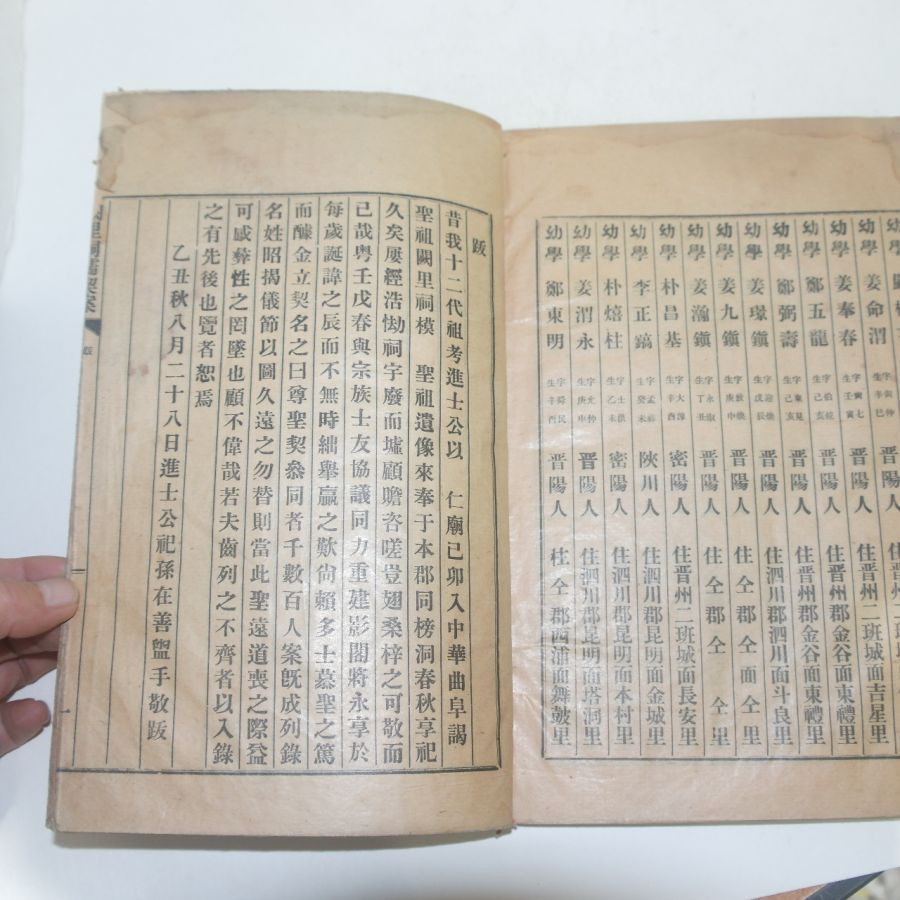 幼學 姜命渭 生辛巳 晋陽人 住晋州二班城面吉星里
幼學 姜奉春 字寅七 生壬寅 晋陽人 住晋州郡金谷面東禮里
幼學 鄭五龍 生己亥 晋陽人 住晋州郡金谷面東禮里
幼學 鄭弼壽 字東見 生己亥 晋陽人 住泗川郡泗川面斗良里
幼學 姜璟鎭 生戊辰 晋陽人 住仝郡仝面仝里
幼學 姜九鎭 生庚申 晋陽人 住仝郡仝 仝里
幼學 姜瀚鎭 字永叔 生丁丑 晋陽人 住晋州二班城面長安里
幼學 朴昌基 字大淳 密陽人 住泗川郡昆明面金城里
幼學 李正鎬 生癸未 陜川人 住泗川郡昆明面本村里
幼學 朴熺柱 字士洪 生乙未 密陽人 住泗川郡昆明面塔洞里
幼學 姜渭永 字允仲 生庚申 晋陽人 住仝郡西浦面舞鼓里
幼學 鄭東明 字舜民 生辛酉 晋陽人
跋
昔我十二代祖考進士公以 仁廟己卯入中華曲阜謁
聖祖闕里祠模 聖祖遺像來奉于本郡同榜洞春秋享祀
久矣屢經浩刧祠宇廢而墟顧瞻咨嗟豈翅桑梓之可敬而
已哉粤壬戊春與宗族士友協議同力重建影閣將永享於
每歲誕諱之辰而不無時絀舉贏之歎尙賴多士慕聖之篤
而醵金立契名之曰尊聖契叅同者千數百人案旣成列錄
名姓昭揭儀節以圖久遠之勿替則當此聖遠道喪之際益
可感彜性之罔墜也顧不偉哉若夫齒列之不齊者以入錄
之有先後也覽者恕焉
乙丑秋八月二十八日進士公祀孫在善盥手敬跋
跋
一